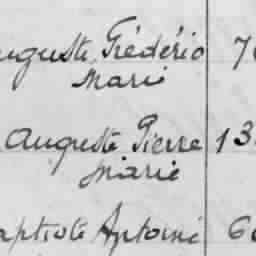 Auguste Frédéric 7
Marie
Auguste Pierre 13
Marie
Baptiste Antoine 6